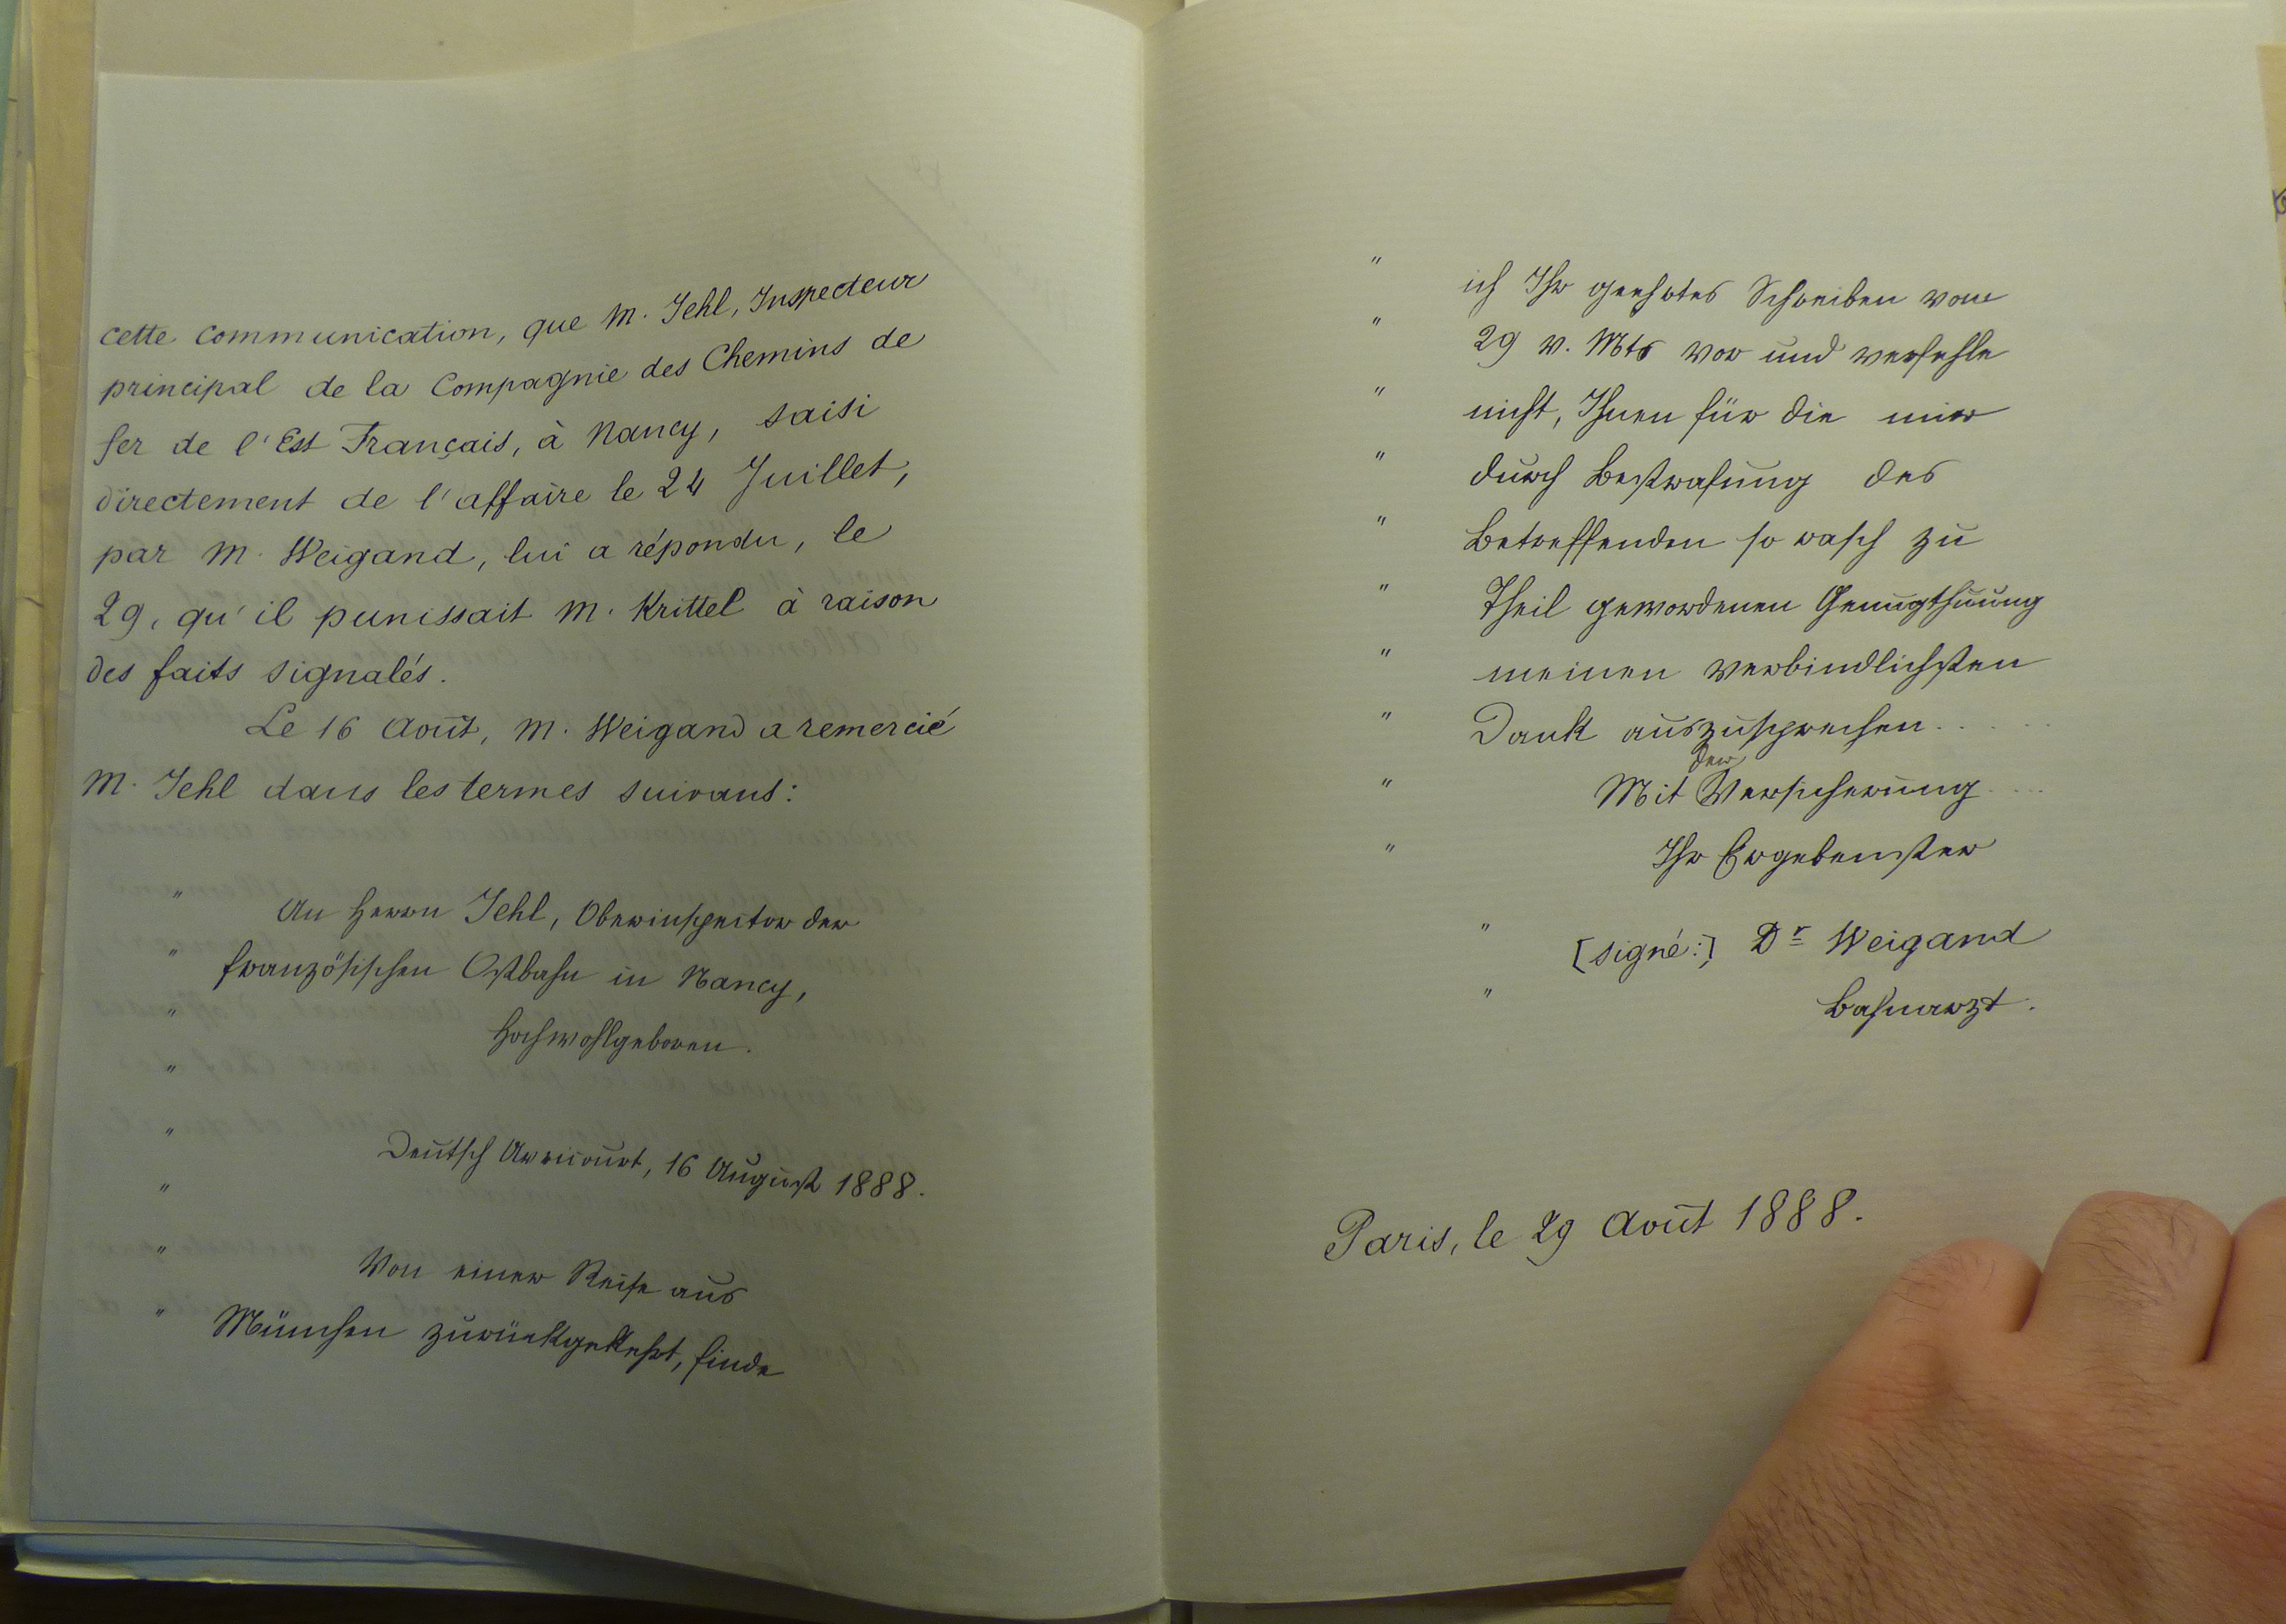 cette communication, que M. Jehl, Inspecteur
principal de la Compagnie des Chemins de
fer de l'Est Français, à Nancy, saisi
directement de l'affaire le 24 Juillet,
par M. Weigand, lui a répondu, le
29, qu'il punissait M. Krittel à raison
des faits signalés.
Le 16 Août, M. Weigand a remercié
M. Jehl dans les termes suivans:
" An Herrn Jehl, Oberinspector der
" französischen Ostbahn in Nancy,
" Hochwohlgeboren.
"
" Deutsch Avricourt, 16 August 1888.
"
" Von einer Reise aus
" München zurückgekehrt, finde
" ich Ihr geehrtes Schreiben vom
" 29 v. Mts vor und verfehle
" nicht, Ihnen für die mir
" durch Bestrafung des
" Betreffenden so rasch zu
" Theil gewordenen Genugthuung
" meinen verbindlichsten
" Dank auszusprechen . . . . .
der
" Mit Versicherung . . . .
" Ihr Ergebenster
" [signé:] Dr Weigand
" Bahnarzt.
Paris, le 29 Août 1888.